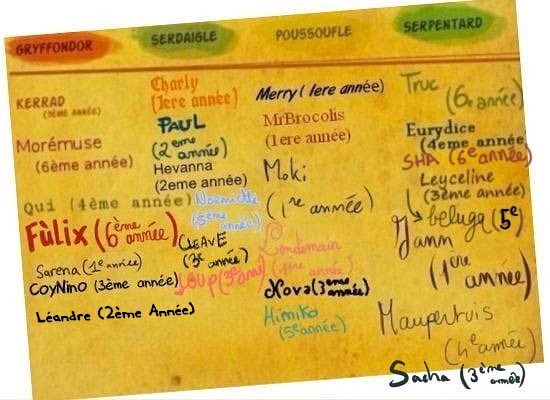 GRYFFONDOR
SERDAIGLE
POUSSOUFLE
SERPENTARD
KERRAD
(3ème année)
Morémuse
(6ème année)
Qui (4ème année)
Fùlix (6ème année)
Sarena (1e année)
CoyNino (3ème année)
Léandre (2ème Année)
Charly
(1ere année)
PAUL
(2eme année)
Hevanna
(2eme année)
(5eme année)
CLEAVE
(3e année)
Loup (3e ann)
Merry (1ere année)
MrBrocolis
(1ere année)
Moki
(1re année)
Lendemain
(1ère année)
Nova (3eme année)
Himiko
(5e année)
Truc
(6e année)
Eurydice
(4eme année)
SHA (6e année)
Leyceline
(3ème année)
beluga (5e
Yann
(1ere année)
Maupertuis
(4e année)
Sacha (3ème année)